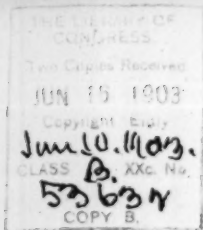 THE LIBRARY OF
CONGRESS
Two Copies Received
JUN 15 1903
Copyright Entry
Jun 10. 1903.
CLASS B. XXc. No.
COPY B.